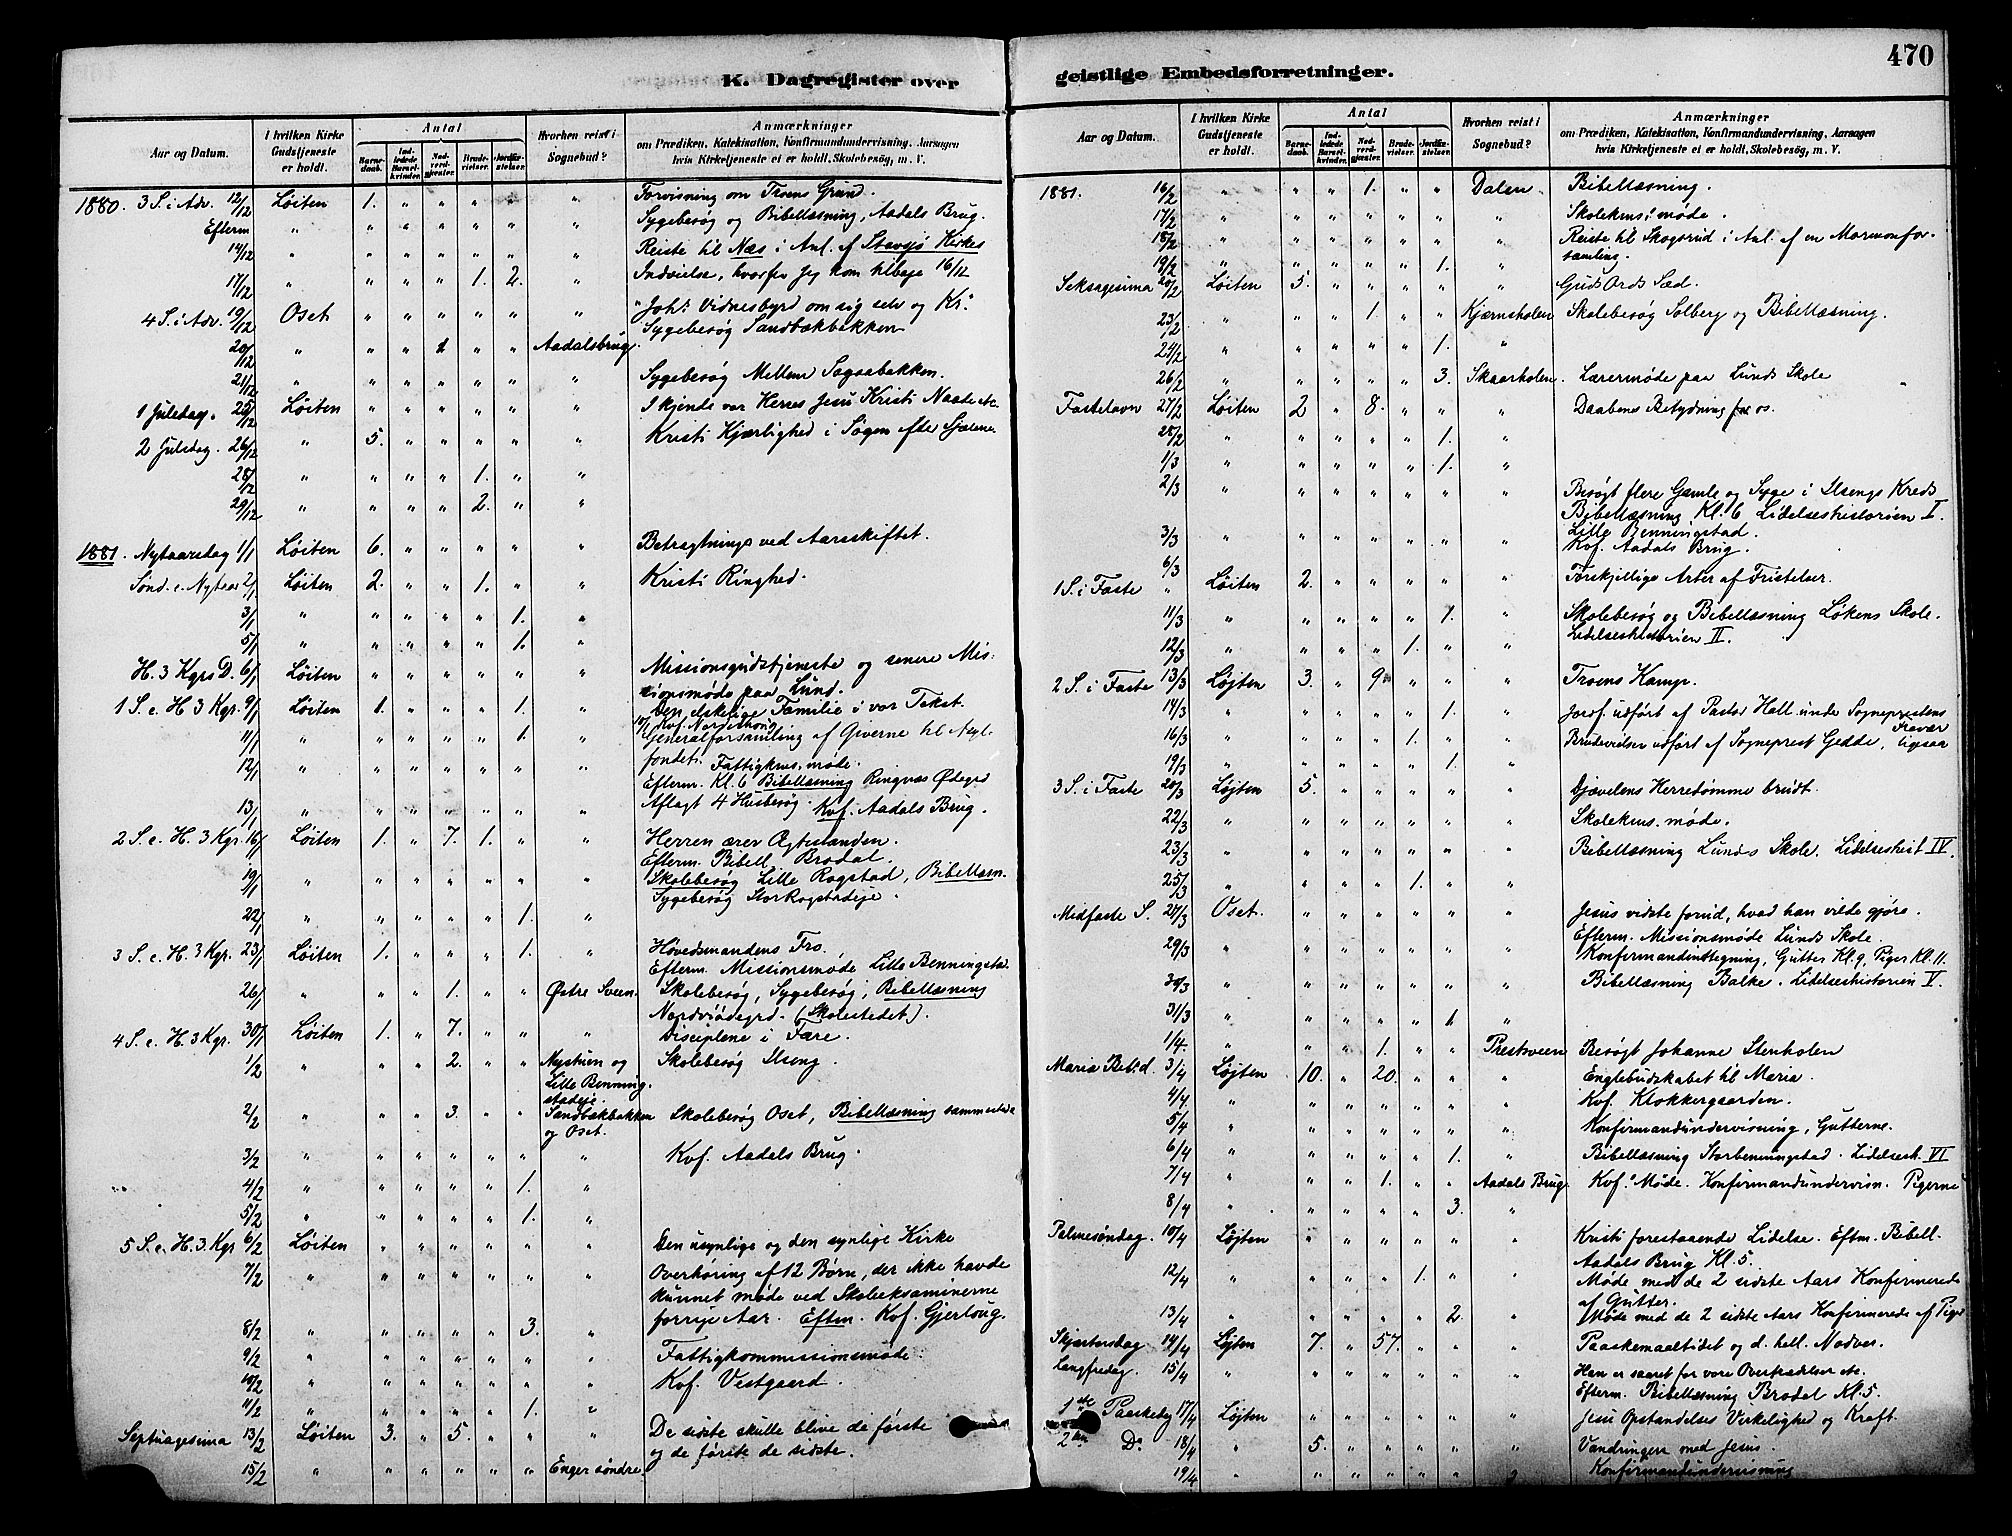 K. Dagregister over
Aar og Datum.
I hvilken Kirke Gudstjeneste er holdt.
Antal
Barnedaab.
Indledede Barselkvinder.
Nadverdgjester.
Brudevielser.
Jordfæstelser.
Hvorhen reist i Sognebud?
Anmærkninger
om Prædiken, Katekisation, Konfirmandundervisning, Aarsagen
hvis Kirketjeneste ei er holdt, Skolebesög, m. V.
1880. 3 S. i Adv. 12/12 Løiten 1. " " " " " Forvisning om Troens Grund.
Efterm " " " " " " " Sygebesøg og Bibellæsning, Aadals Brug.
14/12 " " " " " " " Reiste til Næs i Anl. af Stavsjø Kirkes
17/12 " " " " 1. 2. " Indvielse, hvorfra jeg kom tilbage 16/12
4 S. i Adv. 19/12 Oset " " " " " " "Joh.s Vidnesbyrd om sig selv og Kr."
Sygebesøg Sandbækbakken
20/12 " " " " " Aadalsbrug
21/12 " " " " " " " Sygebesøg Mellem Sagsabakken.
1 Juledag. 25/12 Løiten " " " " " " I kjende vor Herres Jesu Kristi Naade etc.
2 Juledag. 26/12 " 5. " " " " " Kristi Kjærlighed i Søgen efter Sjælene.
28/12 " " " " 1. " "
29/12 " " " " 2. " "
1881. Nytaarsdag 1/1 Løiten 6. " " " " " Betragtninger ved Aarsskiftet.
Sønd. e. Nytaar 2/1 Løiten 2. " " 1. " " Kristi Ringhed.
3/1 " " " " " 1. "
5/1 " " " " " 1. "
H. 3 Kgrs D. 6/1 Løiten " " " " " " Missionsgudstjeneste og senere Mis-
sionsmøde paa Lund.
1 S. e. H. 3 Kgr. 9/1 Løiten 1. " " " 1. " Den elskelige Familie i vor Tekst.
10/1 Kvf. Nordeshoug
11/1 " " " " " 1. " Generalforsamling af Giverne til Ægt-
fondet.
12/1 " " " " " " " Fattigkms. møde.
Efterm. Kl. 6 Bibellæsning Ringnæs Ødegrd
13/1 " " " " " " " Aflagt 4 Husbesøg. Kvf. Aadals Brug.
2 S. e. H. 3 Kgr. 16/1 Løiten 1. " 7. 1. " " Herren ærer Ægtestanden.
Efterm. Bibell. Brodal.
19/1 " " " " " " " Skolebesøg Lille Rogstad, Bibellæsn.
Sygebesøg Stor Rogstadeje.
22/1 " " " " " 1. "
3 S. e. H. 3 Kgr. 23/1 Løiten 1. " " " 1. " Høvedsmandens Tro.
Efterm. Missionsmøde Lille Benningstad.
26/1 " " " 1. " " Østre Sveen Skolebesøg, Sygebesøg, Bibellæsning
(Skolestedet).
4 S. e. H. 3 Kgr. 30/1 Løiten 1. " 7. " " " Disciplene i Fare.
1/2 " " " 2. " " Nystuen og Skolebesøg Ilseng.
Lille Benning-
stadeje.
2/2 " " " 3. " " Sandbækbakken Skolebesøg Oset, Bibellæsning sammesteds
og Oset.
3/2 " " " " " " " Kvf. Aadals Brug.
4/2 " " " " " 1. "
5/2 " " " " " 1. "
5 S. e. H. 3. Kgr 6/2 Løiten " " " " " " Den usynlige og den synlige Kirke
7/2 " " " " " " " Overhøring af 12 Børn, der ikke havde
kunnet møde ved Skoleeksaminerne
8/2 " " " " " 3. " forrige Aar. Eftm. Kvf. Gjerloug.
9/2 " " " " " " " Fattigkommissionsmøde.
10/2 " " " " " " " Kvf. Vestgaard.
11/2 " " " " " 1. "
Septuagesima 13/2 Løiten 3. " 5. " " " De sidste skulle blive de første
og de første de sidste.
15/2 " " " " " " Enger søndre.
geistlige Embedsforretninger.
470
Aar og Datum.
I hvilken Kirke Gudstjeneste er holdt.
Antal
Barnedaab.
Indledede Barselkvinder.
Nadverdgjester.
Brudevielser.
Jordfæstelser.
Hvorhen reist i Sognebud?
Anmærkninger
om Prædiken, Katekisation, Konfirmandundervisning, Aarsagen
hvis Kirketjeneste ei er holdt, Skolebesög, m. V.
1881. 16/2 " " " 1. " " Dalen. Bibellæsning.
17/2 " " " " " " " Skolekms. møde.
18/2 " " " " " " " Reiste til Skogsrud i Anl. af en Mormonfor-
samling.
19/2 " " " " " 1. "
Seksagesima 20/2 Løiten 5. " " " " " Guds Ords Sæd.
23/2 " " " 1. " " Kjernsholen Skolebesøg Solberg og Bibellæsning.
24/2 " " " " " 1. "
26/2 " " " " " 3. Skaarholen. Lærermøde paa Lunds Skole
Fastelavn 27/2 Løiten 2 " 8. " " " Daabens Betydning for os.
28/2 " " " " " 1. "
1/3 " " " " " 1. "
2/3 " " " " " " " Besøgt flere Gamle og Syge i Ilsengs Kreds
Bibellæsning Kl. 6 Lidelseshistorien I.
Lille Benningstad.
3/3 " " " " " " " Kvf. Aadals Brug.
1 S. i Faste 6/3 Løiten 2. " " " " " Forskjellige Arter af Fristelser.
11/3 " " " " " 1. " Skolebesøg og Bibellæsning Løkens Skole.
Lidelseshistorien II.
12/3 " " " " 1. " "
2 S. i Faste 13/3 Løjten 3. " 9. " " " Troens Kamp.
14/3 " " " " " 1. " Jordf. udført af Pastor Hall under Sogneprestens
Fravær
16/3 " " " " 1. " " Brudevielse udført af Sogneprest Gedde, ligesaa
19/3 " " " " " 1. "
3 S. i Faste 20/3 Løjten 5. " " " " " Djævelens Herredømme brudt.
22/3 " " " " " " " Skolekms. møde.
23/3 " " " " " " " Bibellæsning Lunds Skole. Lidelseshist IV.
25/3 " " " " 1. " "
Midfaste S. 27/3 Oset. " " " " " " Jesus vidste forud, hvad han vilde gjøre.
Efterm. Missionsmøde Lunds Skole.
29/3 " " " " " " " Konfirmandindtegning, Gutter Kl. 9, Piger Kl. 11.
30/3 " " " " " " " Bibellæsning Balke. Lidelseshistorien V.
31/3 " " " " " 1. "
1/4. " " " 1. " " Prestsveen Besøgt Johanne Stenholen
Maria Beb. d. 3/4 Løjten 10. " 20. " " " Englebudskabet til Maria.
4/4 " " " " " " " Kvf. Klokkergaarden.
5/4 " " " " " " " Konfirmandundervisning, Gutterne.
6/4 " " " " " 1. " Bibellæsning Storbenningstad. Lidelsesh. VI
7/4 " " " 1. " " Aadals Brug Kvf. Møde. Konfirmandundervisn. Pigerne
8/4 " " " " " 3. "
Palmesøndag. 10/4 Løjten " " " " " " Kristi forestaaende Lidelse. Eftm. Bibell.
Aadals Brug Kl. 5.
12/4 " " " " 1. " " Møde med de 2 sidste Aars Konfirmerede
af Gutter.
13/4 " " " " " 2. " Møde med de 2 sidste Aars Konfirmerede af Piger
Skjærtorsdag 14/4 Løjten 7. " 57. " " " Paaskemaaltidet og d. hell. Nadver.
Langfredag. 15/4 Han er saaret for vore Overtrædelser etc.
Efterm. Bibellæsning Brodal Kl. 5.
1ste Paaskedg 17/4 Løjten " " " " " " Jesu Opstandelses Virkelighed og Kraft.
2den Do 18/4 " 5. " " " " " Vandringen med Jesus.
19/4 " " " " " " " Konfirmandundervisning